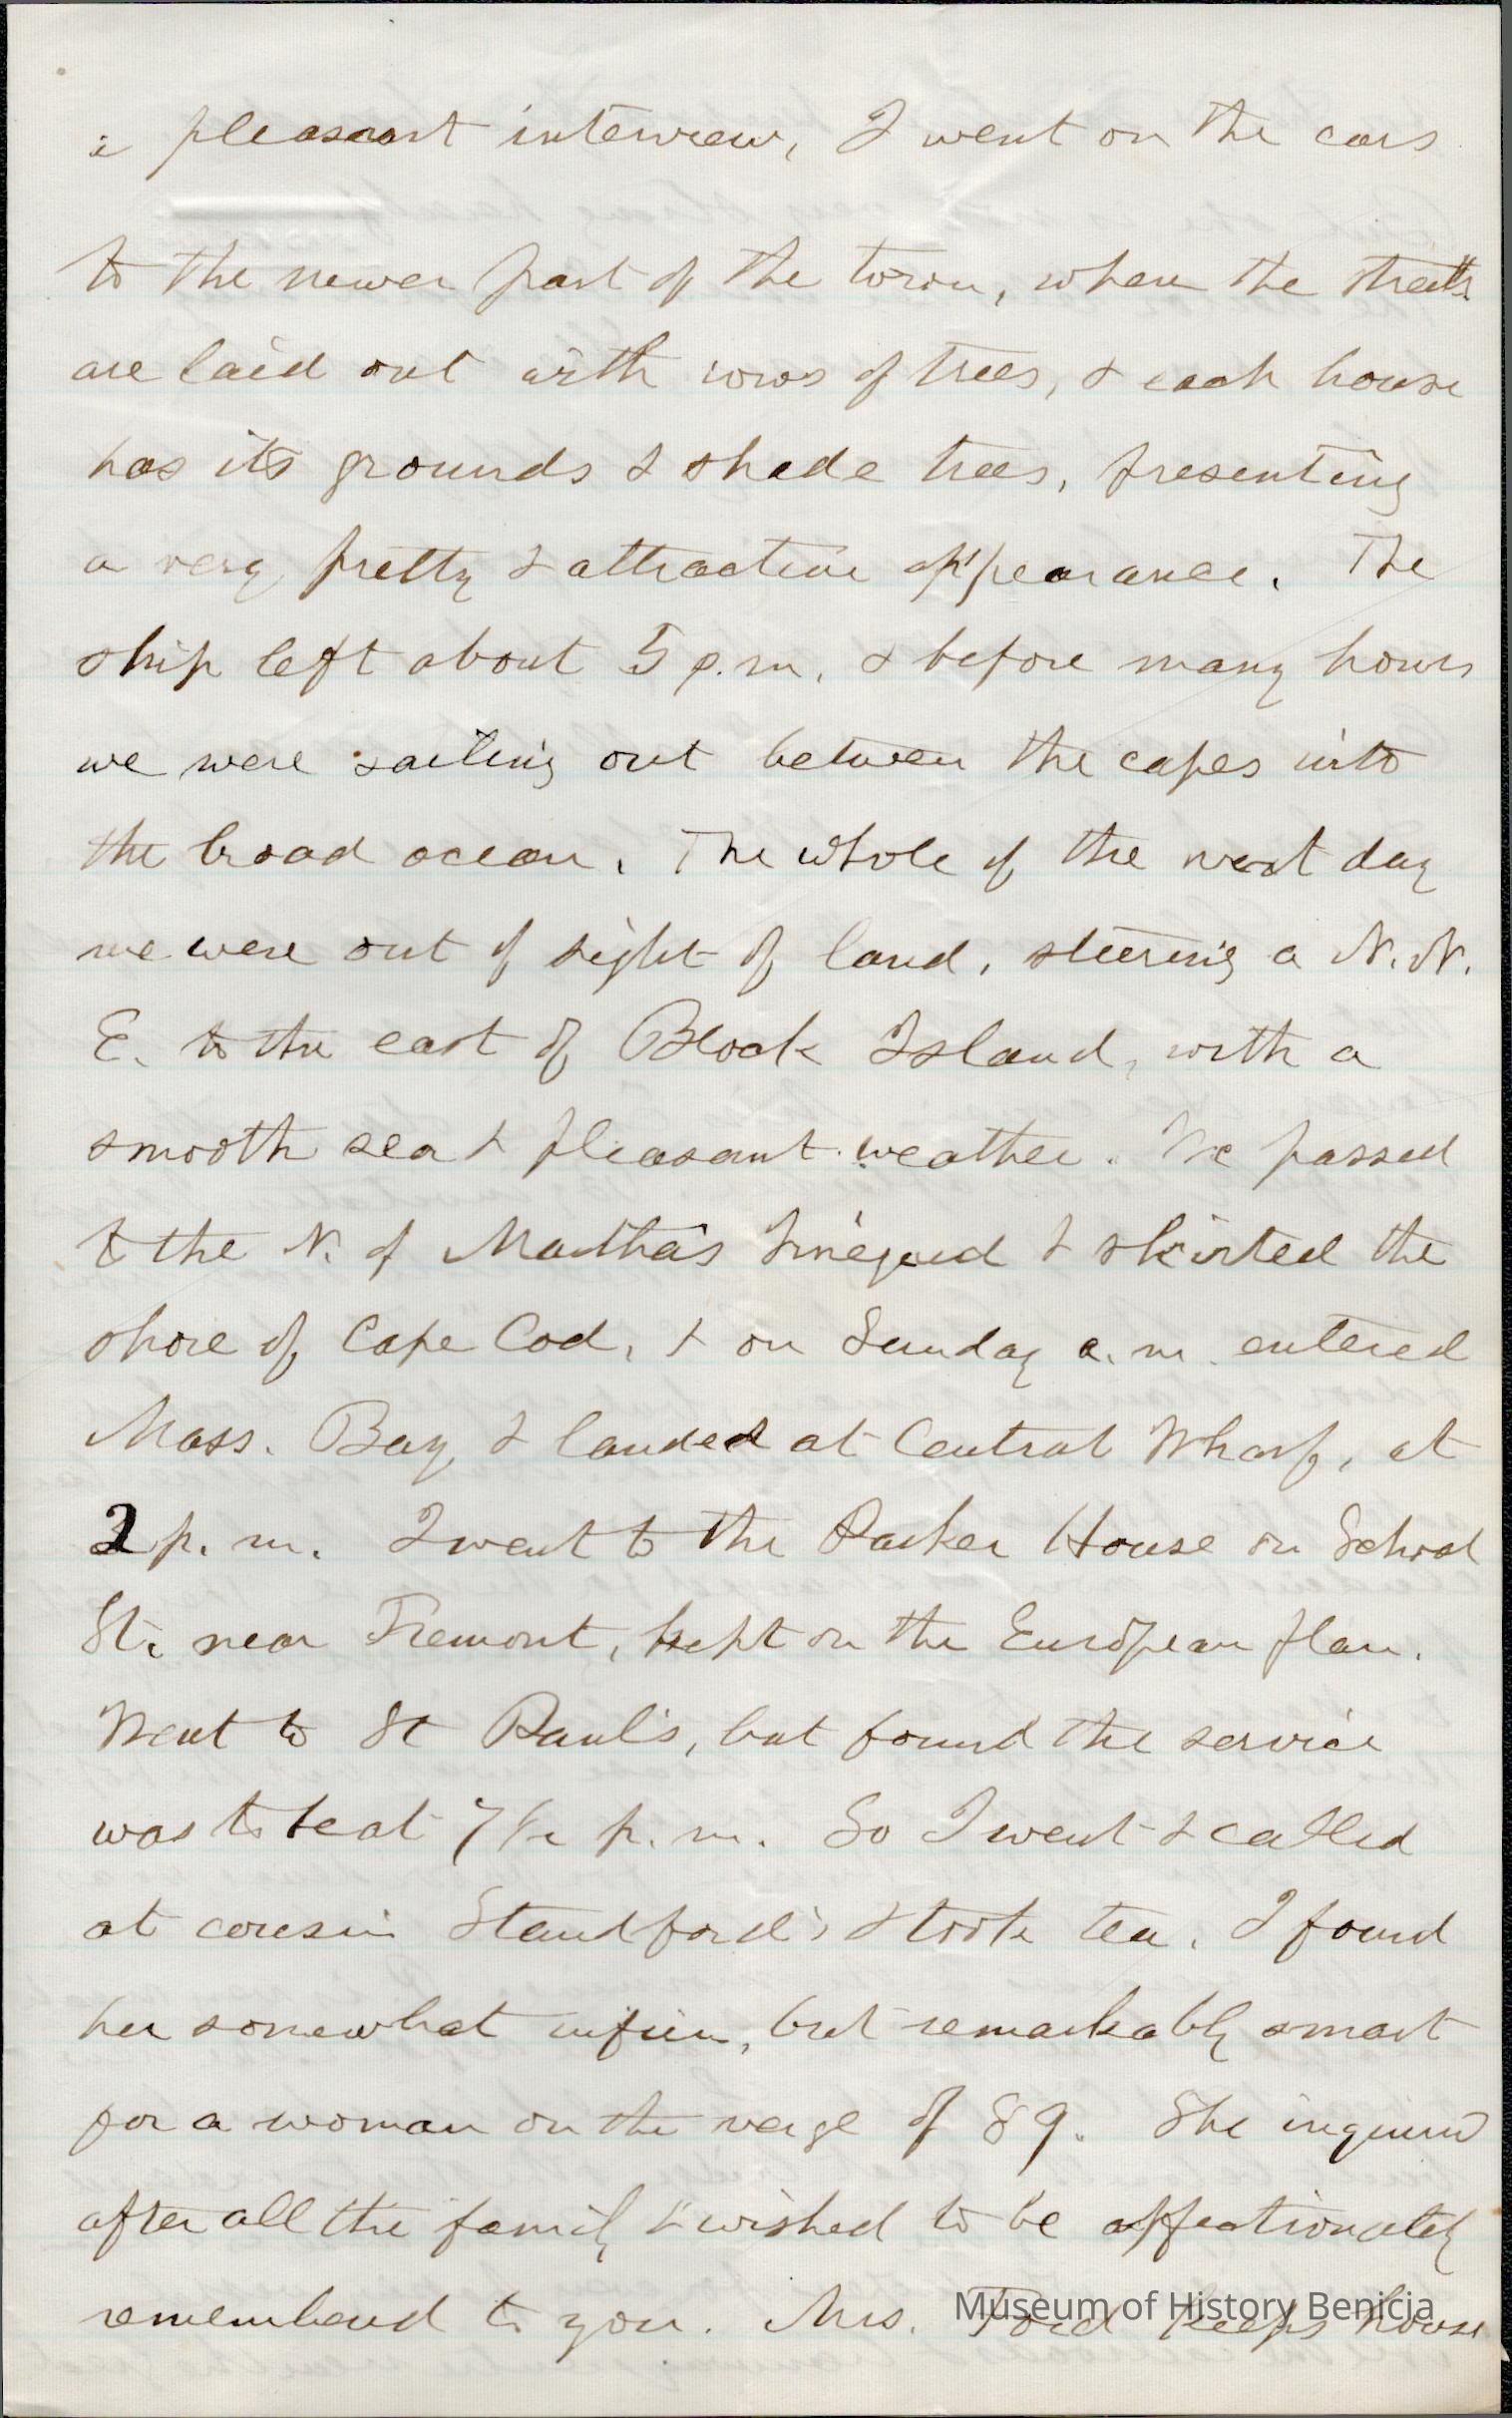 a pleasant interview, I went on the cars
to the newer part of the town, where the streets
are laid out with rows of trees, & each house
has its grounds & shade trees, presenting
a very pretty & attractive appearance. The
ship left about 5 p.m. & before many hours
we were sailing out between the capes into
the broad ocean. The whole of the next day
we were out of sight of land, steering a N.N.
E. to the east of Block Island, with a
smooth sea & pleasant weather. We passed
to the N. of Martha's Vineyard & skirted the
shore of Cape Cod, & on Sunday a.m. entered
Mass. Bay, & landed at Central Wharf, at
2 p.m. I went to the Parker House on School
St. near Tremont, kept on the European plan.
Went to St Paul's, but found the service
was to be at 7 1/2 p.m. So I went & called
at cousin Standford's & took tea. I found
her somewhat infirm, but remarkably smart
for a woman on the verge of 89. She inquired
after all the family & wished to be affectionately
remembered to you. Mrs. Ford keeps house
Museum of History Benicia